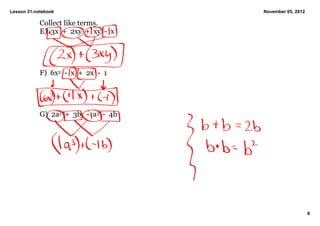 Lesson 31.notebook
November 05, 2012
Collect like terms.
E) 3x + 2xy + xy - x
(2x) + (3xy)
F) 6x² - x + 2x - 1
(6x²) + (+1x) + (-1)
G) 2a³ + 3b - a³ - 4b
b + b = 2b
b • b = b²
(1a³) + (-1b)
6